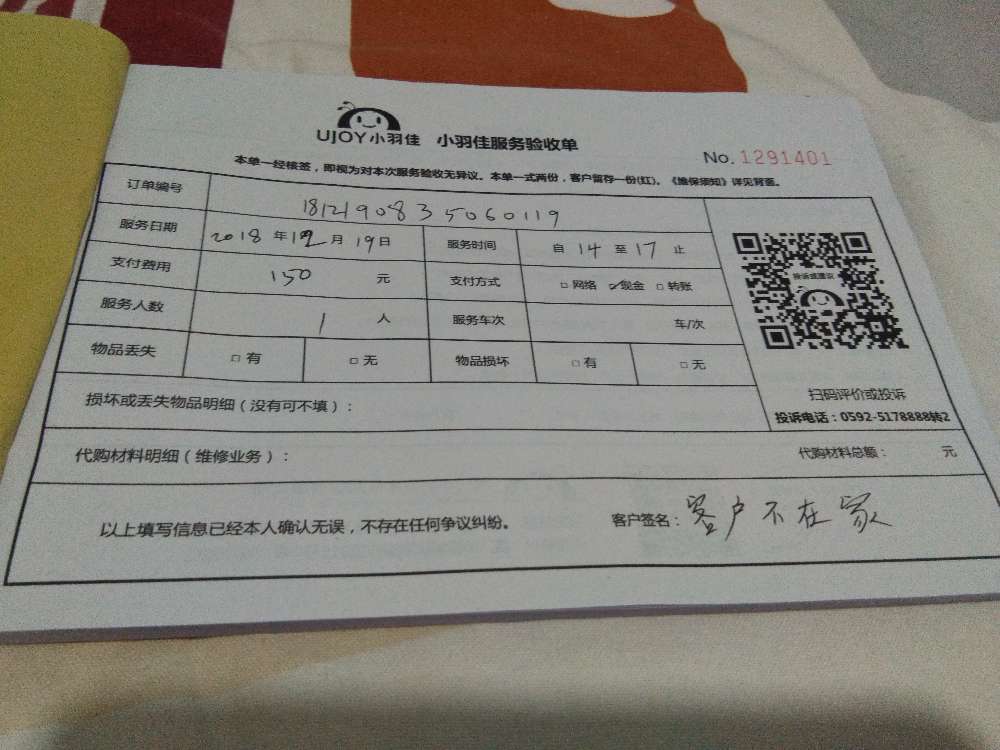 UJOY小羽佳 小羽佳服务验收单
No. 1291401
本单一经核签，即视为对本次服务验收无异议。本单一式两份，客户留存一份(红)。《维保须知》详见背面。
订单编号 1812190835060119
服务日期 2018 年 12 月 19 日 服务时间 自 14 至 17 止
支付费用 150 元 支付方式 □ 网络 ☑ 现金 □ 转账
服务人数 1 人 服务车次 车/次
物品丢失 □ 有 □ 无 物品损坏 □ 有 □ 无
投诉或建议
扫码评价或投诉
投诉电话：0592-5178888转2
损坏或丢失物品明细（没有可不填）：
代购材料明细（维修业务）： 代购材料总额： 元
以上填写信息已经本人确认无误，不存在任何争议纠纷。 客户签名：客户不在家